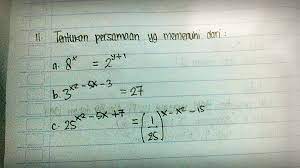 11. Tentukan persamaan yg memenuhi dari :
a. 8^x = 2^{y+1}
b. 3^{x² - 5x - 3} = 27
c. 25^{x² - 5x + 7} = (1/25)^{x - x² - 15}